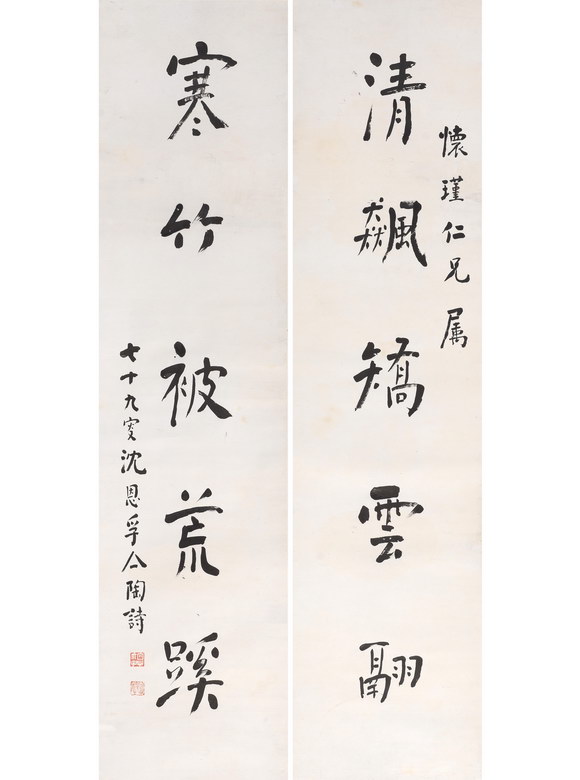 懷瑾仁兄属
清飆矯雲翮
寒竹被荒蹊
七十九叜沈恩孚亼陶詩